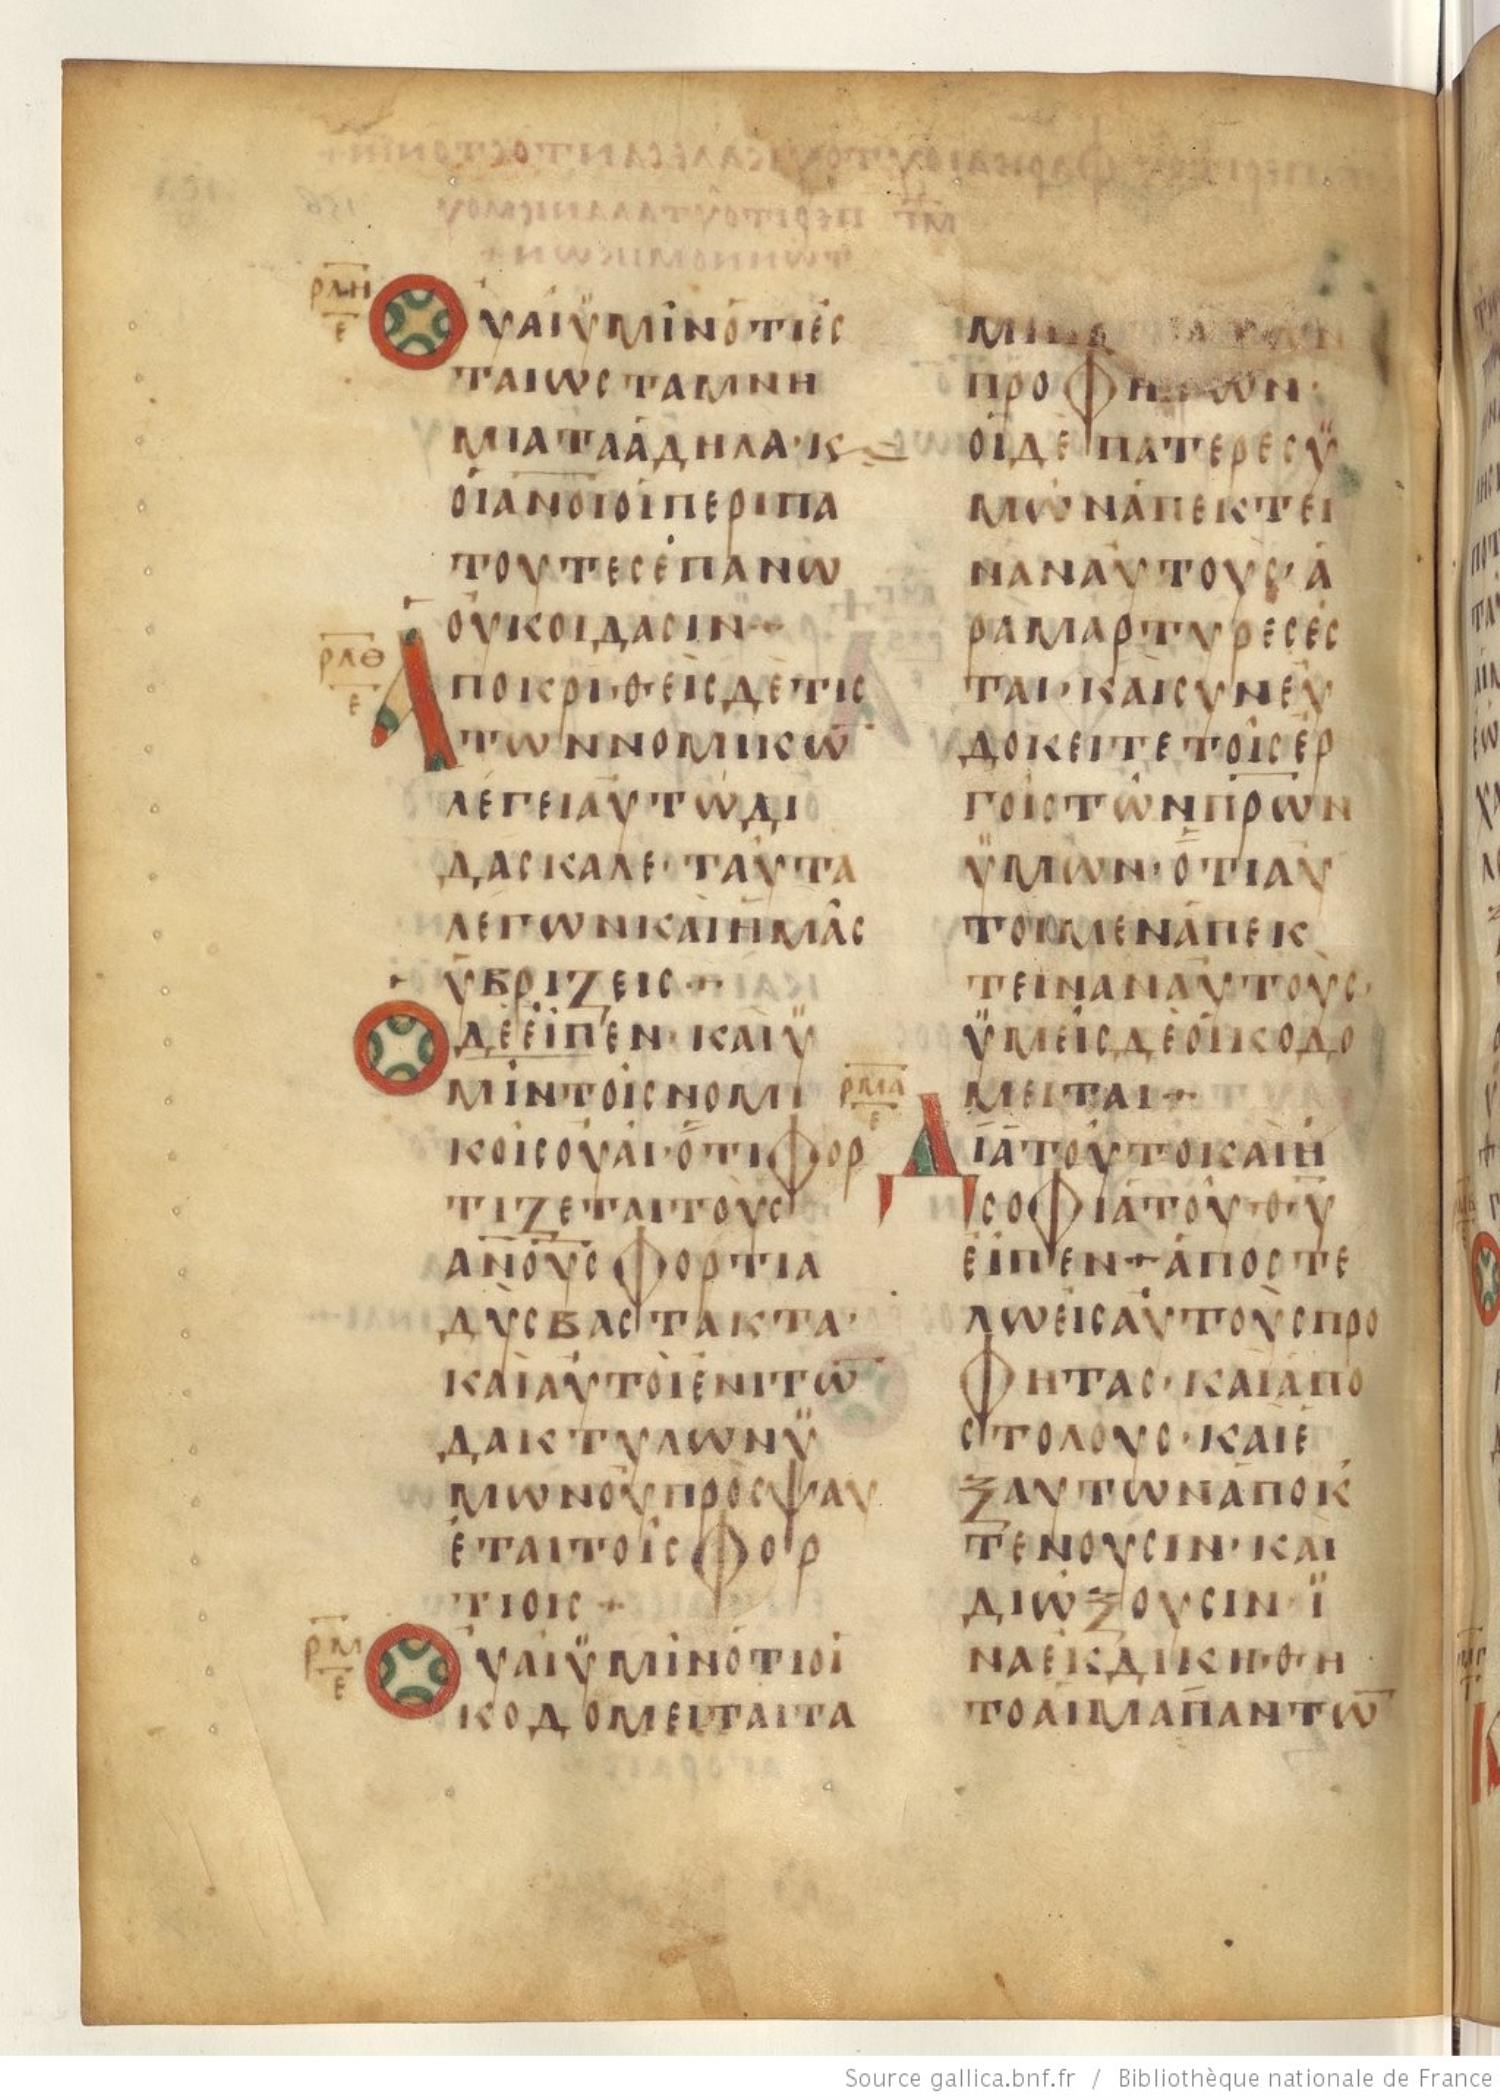 ΡΛΗ
Ε
ΟΥΑΙΫΜΙΝΟΤΙΕϹ
ΤΑΙΩϹΤΑΜΝΗ
ΜΙΑΤΑΑΔΗΛΑ·Κ
ΟΙΑΝΟΙΟΙΠΕΡΙΠΑ
ΤΟΥΤΕϹΕΠΑΝΩ
ΟΥΚΟΙΔΑϹΙΝ+
ΡΛΘ
Ε
ΑΠΟΚΡΙΘΕΙϹΔΕΤΙϹ
ΤΩΝΝΟΜΙΚΩ̅
ΛΕΓΕΙΑΥΤΩΔΙ
ΔΑϹΚΑΛΕ·ΤΑΥΤΑ
ΛΕΓΩΝΚΑΙΗΜΑϹ
ΥΒΡΙΖΕΙϹ+
ΟΔΕΕΙΠΕΝ·ΚΑΙΫ
ΜΙΝΤΟΙϹΝΟΜΙ
ΚΟΙϹΟΥΑΙ·ΟΤΙΦΟΡ
ΤΙΖΕΤΑΙΤΟΥϹ
ΑΝΟΥϹΦΟΡΤΙΑ
ΔΥϹΒΑϹΤΑΚΤΑ·
ΚΑΙΑΥΤΟΙΕΝΙΤΩ̅
ΔΑΚΤΥΛΩΝΫ
ΜΩΝΟΥΠΡΟϹΨΑΥ
ΕΤΑΙΤΟΙϹΦΟΡ
ΤΙΟΙϹ+
ΡΜ
Ε
ΟΥΑΙΫΜΙΝΟΤΙΟΙ
ΚΟΔΟΜΕΙΤΑΙΤΑ
ΠΡΟΦΗΤΩΝ·
ΟΙΔΕΠΑΤΕΡΕϹΫ
ΜΩΝΑΠΕΚΤΕΙ
ΝΑΝΑΥΤΟΥϹ·Α
ΡΑΜΑΡΤΥΡΕϹΕϹ
ΤΑΙ·ΚΑΙϹΥΝΕΥ
ΔΟΚΕΙΤΕΤΟΙϹΕΡ
ΓΟΙϹΤΩΝΠΡΩΝ
ΫΜΩΝ·ΟΤΙΑΥ
ΤΟΙΜΕΝΑΠΕΚ
ΤΕΙΝΑΝΑΥΤΟΥϹ·
ΫΜΕΙϹΔΕΟΙΚΟΔΟ
ΜΕΙΤΑΙ+
ΡΜΑ
Ε
ΔΙΑΤΟΥΤΟΚΑΙΗ
ϹΟΦΙΑΤΟΥΘΥ
ΕΙΠΕΝ+ΑΠΟϹΤΕ
ΛΩΕΙϹΑΥΤΟΥϹΠΡΟ
ΦΗΤΑϹ·ΚΑΙΑΠΟ
ϹΤΟΛΟΥϹ·ΚΑΙΕ
ΞΑΥΤΩΝΑΠΟΚ
ΤΕΝΟΥϹΙΝ·ΚΑΙ
ΔΙΩΞΟΥϹΙΝ·Ϊ
ΝΑΕΚΔΙΚΗΘΗ
ΤΟΑΙΜΑΠΑΝΤΩ̅
Source gallica.bnf.fr / Bibliothèque nationale de France